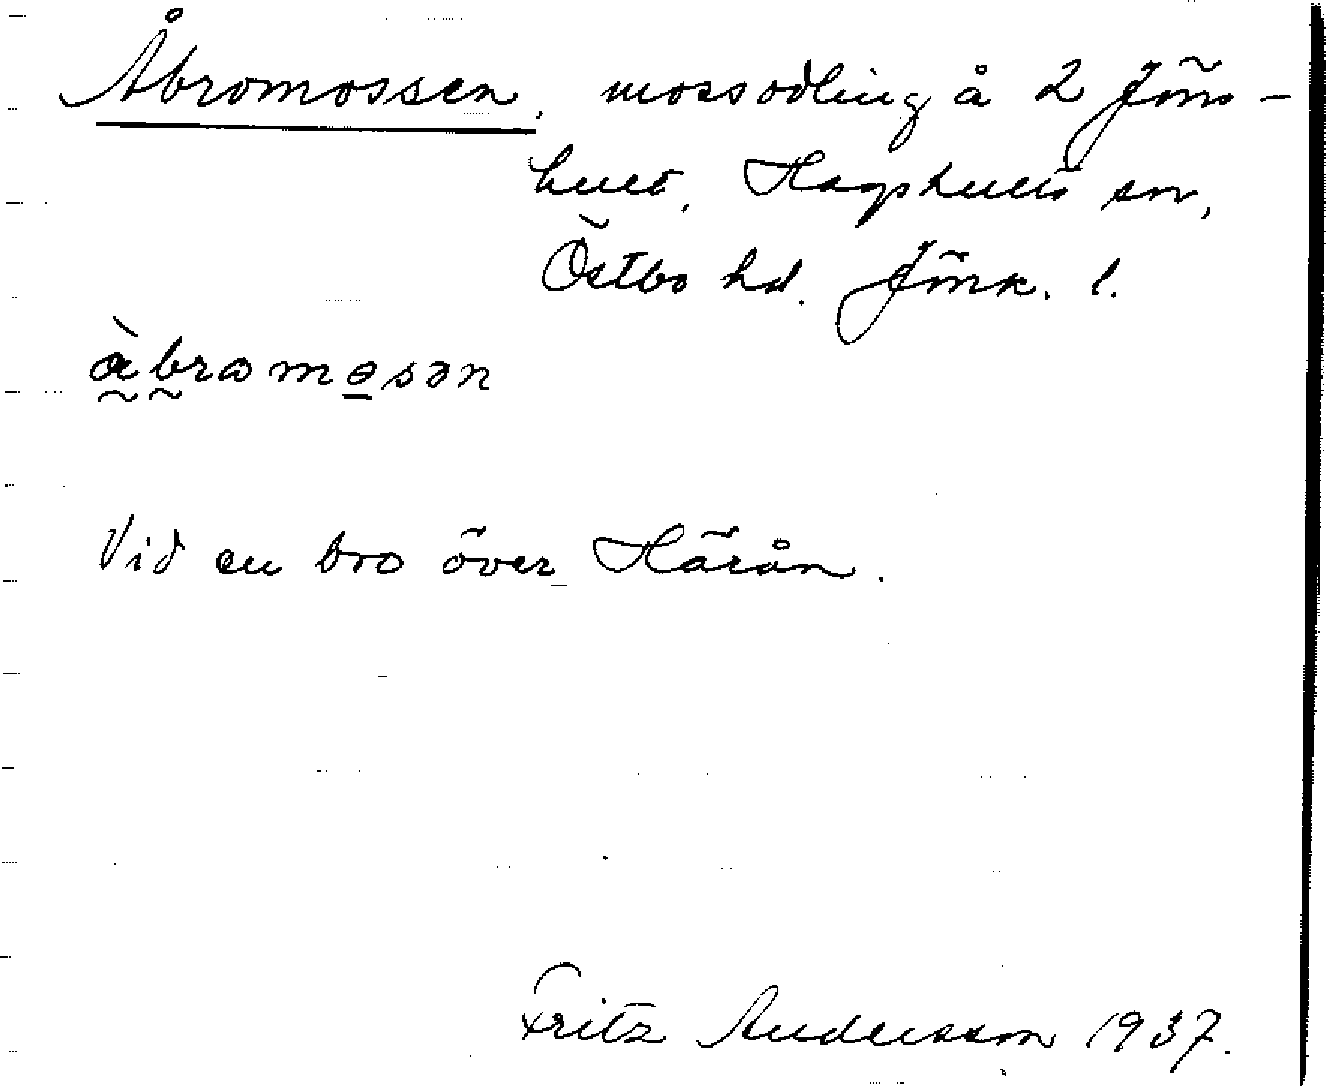 Åbromossen, mossodling å 2 Jöns-
hult, Hagshults sn,
Östbo hd. Jönk. l.
àbramosən
Vid en bro över Härån.
Fritz Andersson 1937.